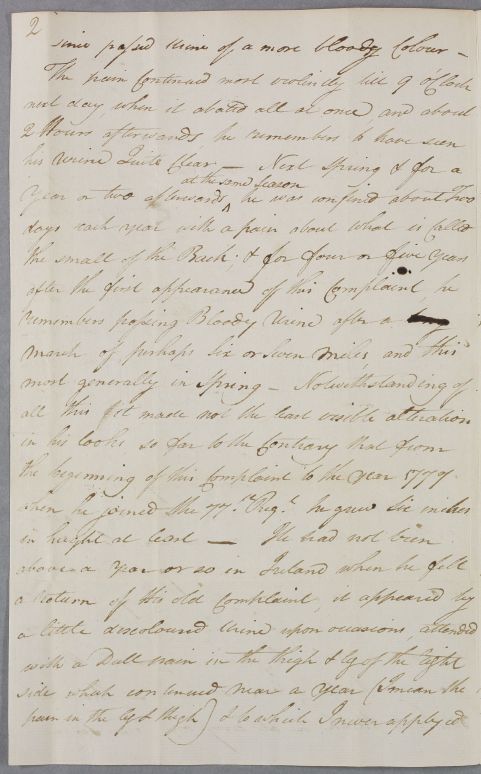 2
since passed Urine of a more bloody Colour –
The pain Continued most violently till 9 o'Clock
next day, when it abated all at once, and about
2 Hours afterwards he remembers to have seen
his Urine Quite Clear – Next Spring & for a
at the same Season
Year or two afterwards ^ he was confined about Two
days each year with a pain about what is Called
the small of the Back; & for four or five Years
after the first appearance of this Complaint, he
remembers passing Bloody Urine after a
march of perhaps Six or Seven miles and this
most generally in Spring – Notwithstanding of
all this it made not the least visible alteration
in his looks so far to the Contrary that from
the beginning of this Complaint to the Year 1777
when he joined the 77th Regt he grew six inches
in height at least — He had not been
above a Year or so in Ireland when he felt
a return of his old Complaint, it appeared by
a little discoloured Urine upon occasions, attended
with a Dull pain in the thigh & leg of the right
side which continued near a Year (I mean the
pain in the leg & thigh) & to which I never applyed